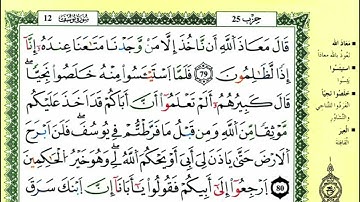 حزب 25
سورة يوسف
12
قَالَ مَعَاذَ ٱللَّهِ أَن نَّأْخُذَ إِلَّا مَن وَجَدْنَا مَتَٰعَنَا عِندَهُۥٓ إِنَّآ
إِذًا لَّظَٰلِمُونَ 79 فَلَمَّا ٱسْتَيْـَٔسُوا۟ مِنْهُ خَلَصُوا۟ نَجِيًّا ۖ
قَالَ كَبِيرُهُمْ أَلَمْ تَعْلَمُوٓا۟ أَنَّ أَبَاكُمْ قَدْ أَخَذَ عَلَيْكُم
مَّوْثِقًا مِّنَ ٱللَّهِ وَمِن قَبْلُ مَا فَرَّطتُمْ فِى يُوسُفَ ۖ فَلَنْ أَبْرَحَ
ٱلْأَرْضَ حَتَّىٰ يَأْذَنَ لِىٓ أَبِىٓ أَوْ يَحْكُمَ ٱللَّهُ لِى ۖ وَهُوَ خَيْرُ ٱلْحَٰكِمِينَ
80 ٱرْجِعُوٓا۟ إِلَىٰٓ أَبِيكُمْ فَقُولُوا۟ يَٰٓأَبَانَآ إِنَّ ٱبْنَكَ سَرَقَ
معاذ الله
نعوذ بالله معاذاً
استيئسوا
يئسوا
خلصوا نجيا
انفردوا للتناجي
والتشاور
العير
القافلة